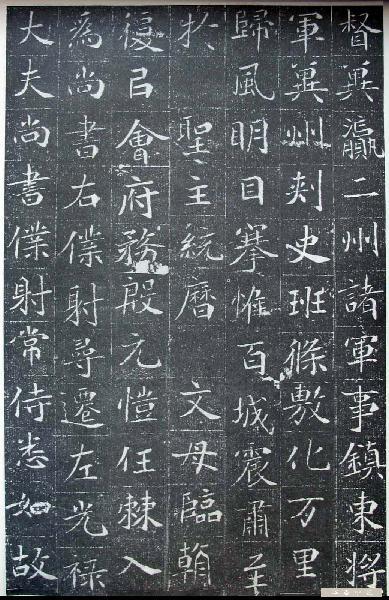 督冀瀛二州諸軍事鎮東將
軍冀州刺史班條敷化万里
歸風明目搴帷百城震肅至
於 聖主統曆 文母臨朝
復㠯會府務殷元愷任棘入
爲尚書右僕射尋遷左光祿
大夫尚書僕射常侍悉如故